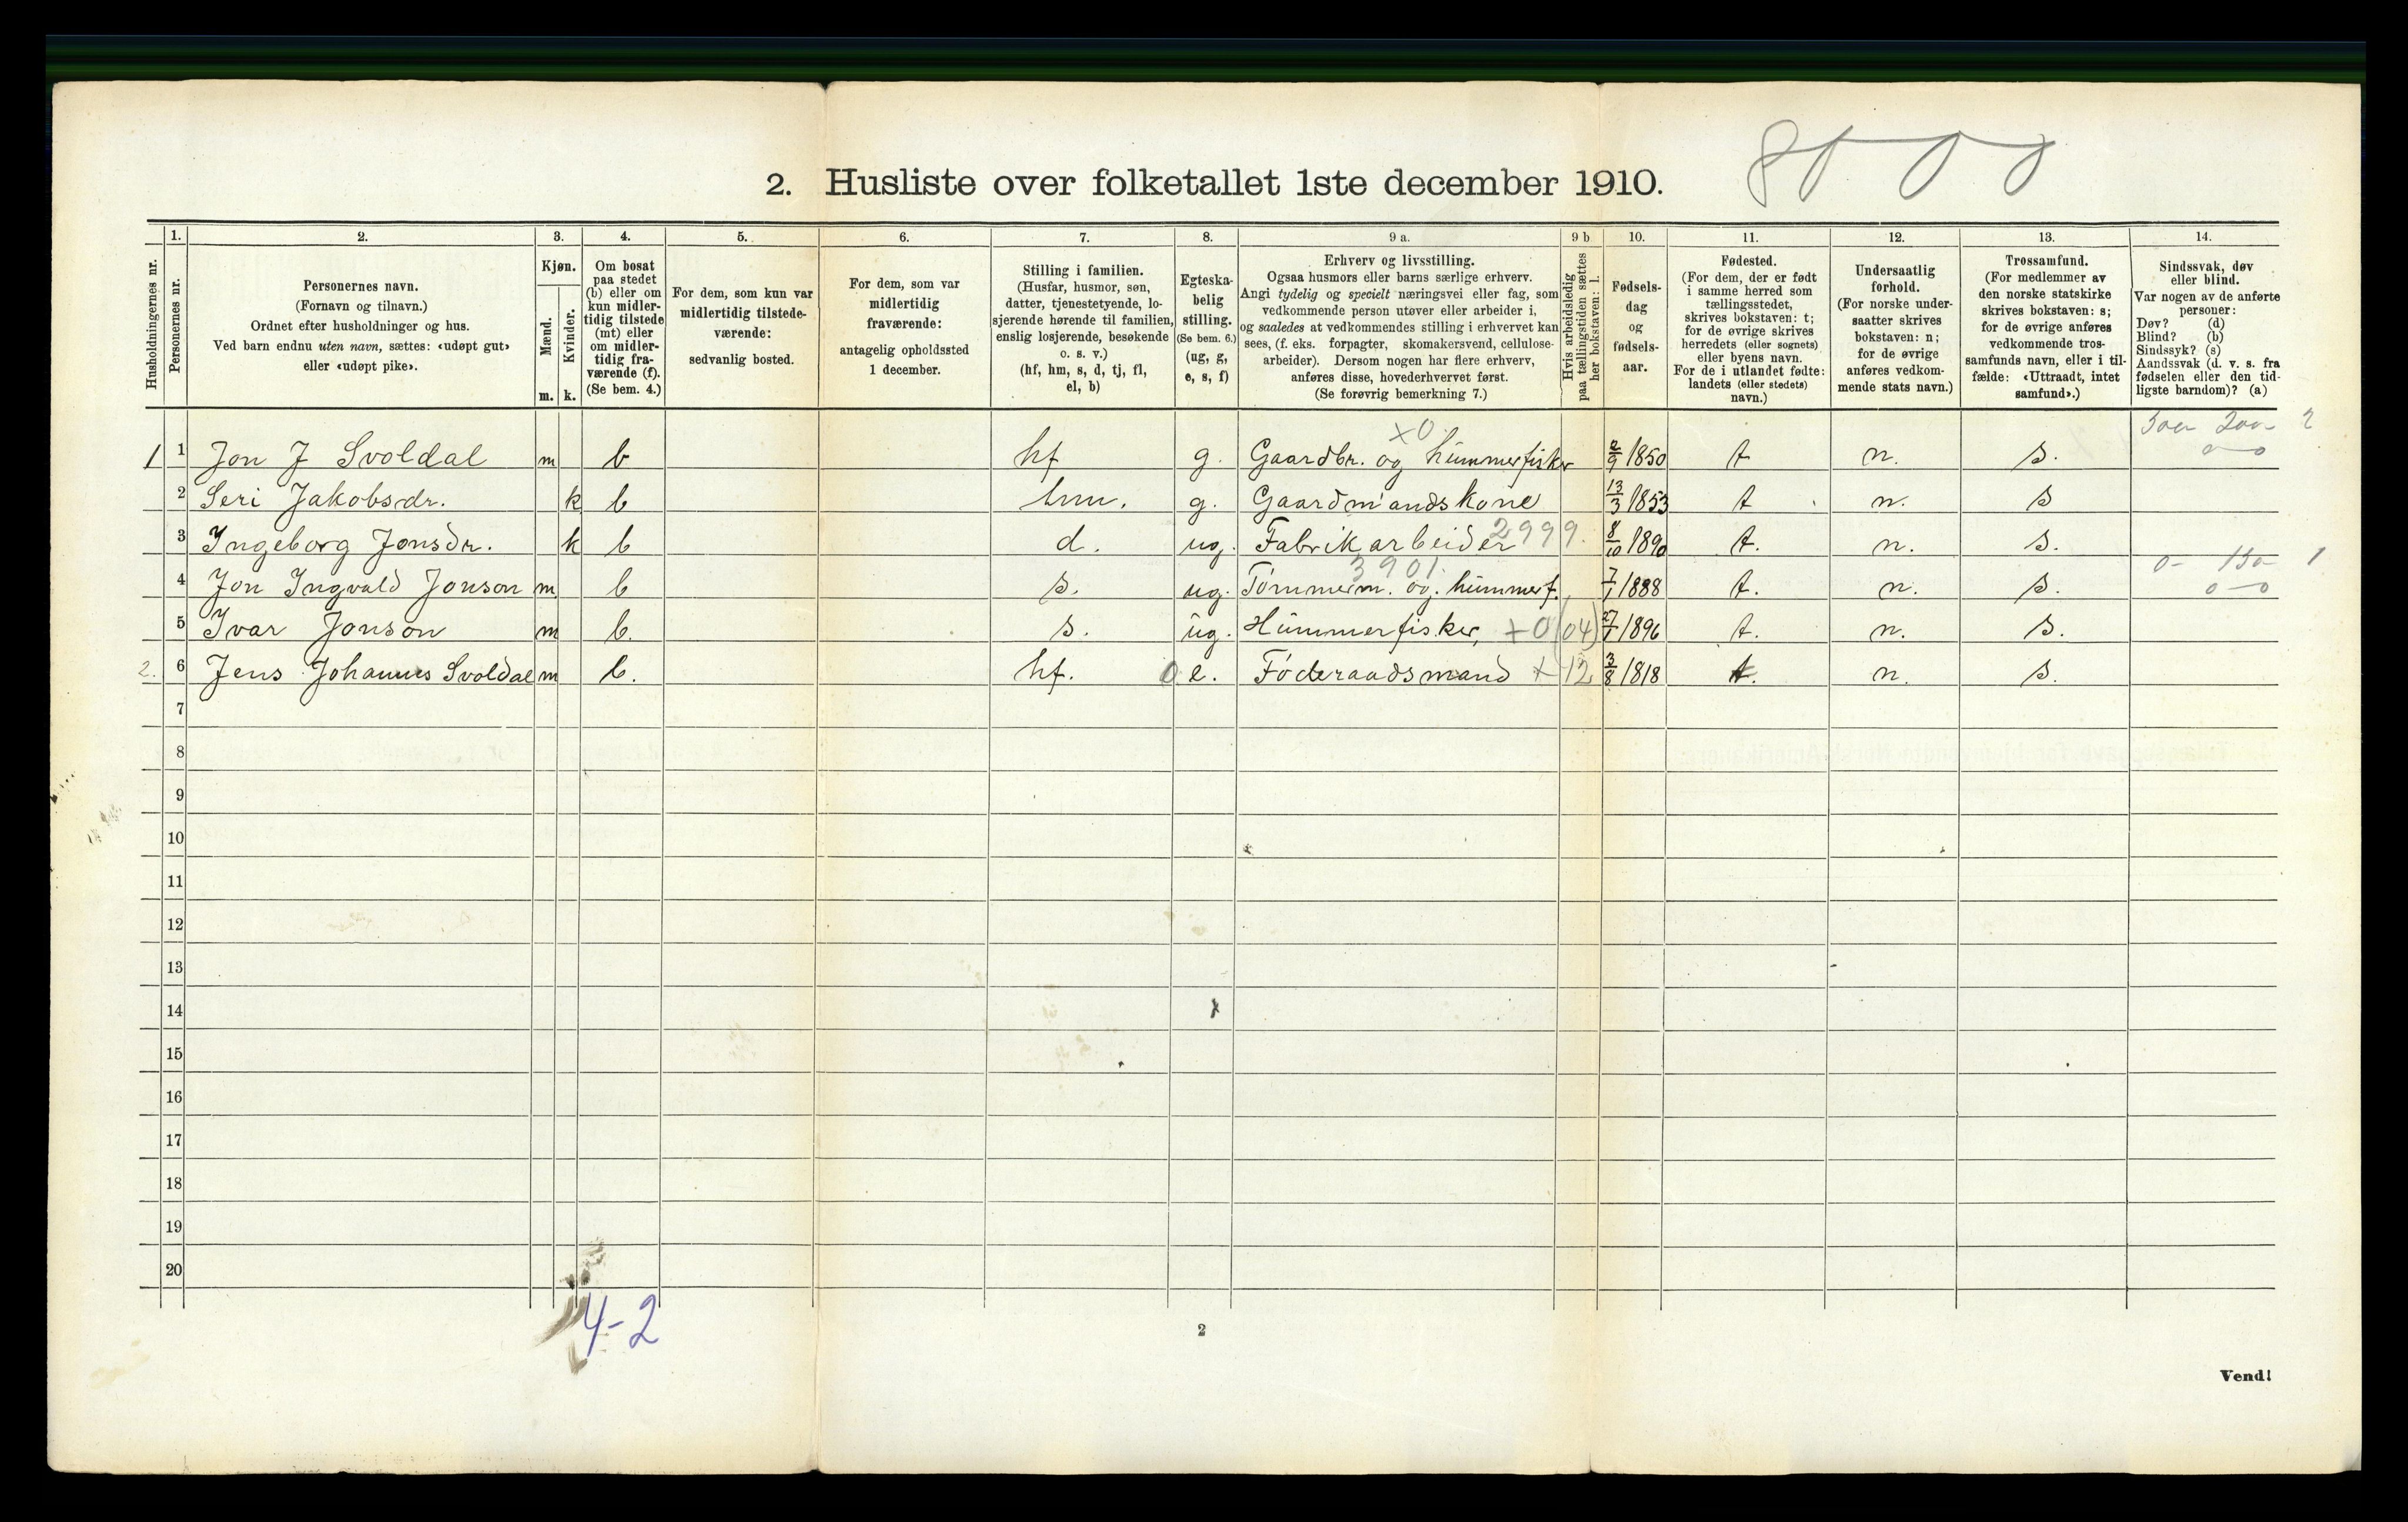 2. Husliste over folketallet 1ste december 1910.
Husholdningernes nr.
1.
Personernes nr.
2.
Personernes navn.
(Fornavn og tilnavn.)
Ordnet efter husholdninger og hus.
Ved barn endnu uten navn, sættes: «udøpt gut»
eller «udøpt pike».
3.
Kjøn.
Mænd.
Kvinder.
m.
k.
4.
Om bosat
paa stedet
(b) eller om
kun midler-
tidig tilstede
(mt) eller
om midler-
tidig fra-
værende (f).
(Se bem. 4.)
5.
For dem, som kun var
midlertidig tilstede-
værende:
sedvanlig bosted.
6.
For dem, som var
midlertidig
fraværende:
antagelig opholdssted
1 december.
7.
Stilling i familien.
(Husfar, husmor, søn,
datter, tjenestetyende, lo-
sjerende hørende til familien,
enslig losjerende, besøkende
o. s. v.)
(hf, hm, s, d, tj, fl,
el, b)
8.
Egteska-
belig
stilling.
(Se bem. 6.)
(ug, g,
e, s, f)
9 a.
Erhverv og livsstilling.
Ogsaa husmors eller barns særlige erhverv.
Angi tydelig og specielt næringsvei eller fag, som
vedkommende person utøver eller arbeider i,
og saaledes at vedkommendes stilling i erhvervet kan
sees, (f. eks. forpagter, skomakersvend, cellulose-
arbeider). Dersom nogen har flere erhverv,
anføres disse, hovederhvervet først.
(Se forøvrig bemerkning 7.)
9 b
Hvis arbeidsledig
paa tællingstiden sættes
her bokstaven: l.
10.
Fødsels-
dag
og
fødsels-
aar.
11.
Fødested.
(For dem, der er født
i samme herred som
tællingsstedet,
skrives bokstaven: t;
for de øvrige skrives
herredets (eller sognets)
eller byens navn.
For de i utlandet fødte:
landets (eller stedets)
navn.)
12.
Undersaatlig
forhold.
(For norske under-
saatter skrives
bokstaven: n;
for de øvrige
anføres vedkom-
mende stats navn.)
13.
Trossamfund.
(For medlemmer av
den norske statskirke
skrives bokstaven: s;
for de øvrige anføres
vedkommende tros-
samfunds navn, eller i til-
fælde: «Uttraadt, intet
samfund».)
14.
Sindssvak, døv
eller blind.
Var nogen av de anførte
personer:
Døv? (d)
Blind? (b)
Sindssyk? (s)
Aandssvak (d. v. s. fra
fødselen eller den tid-
ligste barndom)? (a)
x0 2
1 1 Jon J Svoldal m b hf g. Gaardbr. og hummerfisker 2/9 1850 t n. s.
2 Seri Jakobsdr. k b hm. g. Gaardmandskone 13/3 1853 t n. s
3 Ingeborg Jonsdr. k b d. ug. Fabrikarbeider 2999. 8/10 1890 t. n. s.
3901. 1
4 Jon Ingvald Jonson m b s. ug. Tømmerm. og. hummerf. 7/1 1888 t. n. s.
5 Ivar Jonson m b. s. ug. Hummerfisker, +0 (04) 27/1 1896 t. n. s.
2. 6 Jens Johannes Svoldal m b. hf. 0 e. Føderaadsmand + 12 3/8 1818 t. n. s.
7
8
9
10
11
12
13
14
15
16
17
18
19
20
4-2
2
Vend!